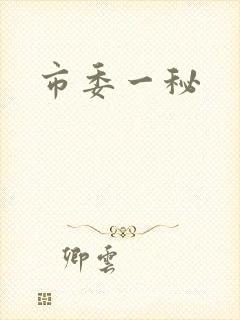 市委一秘
卿雲